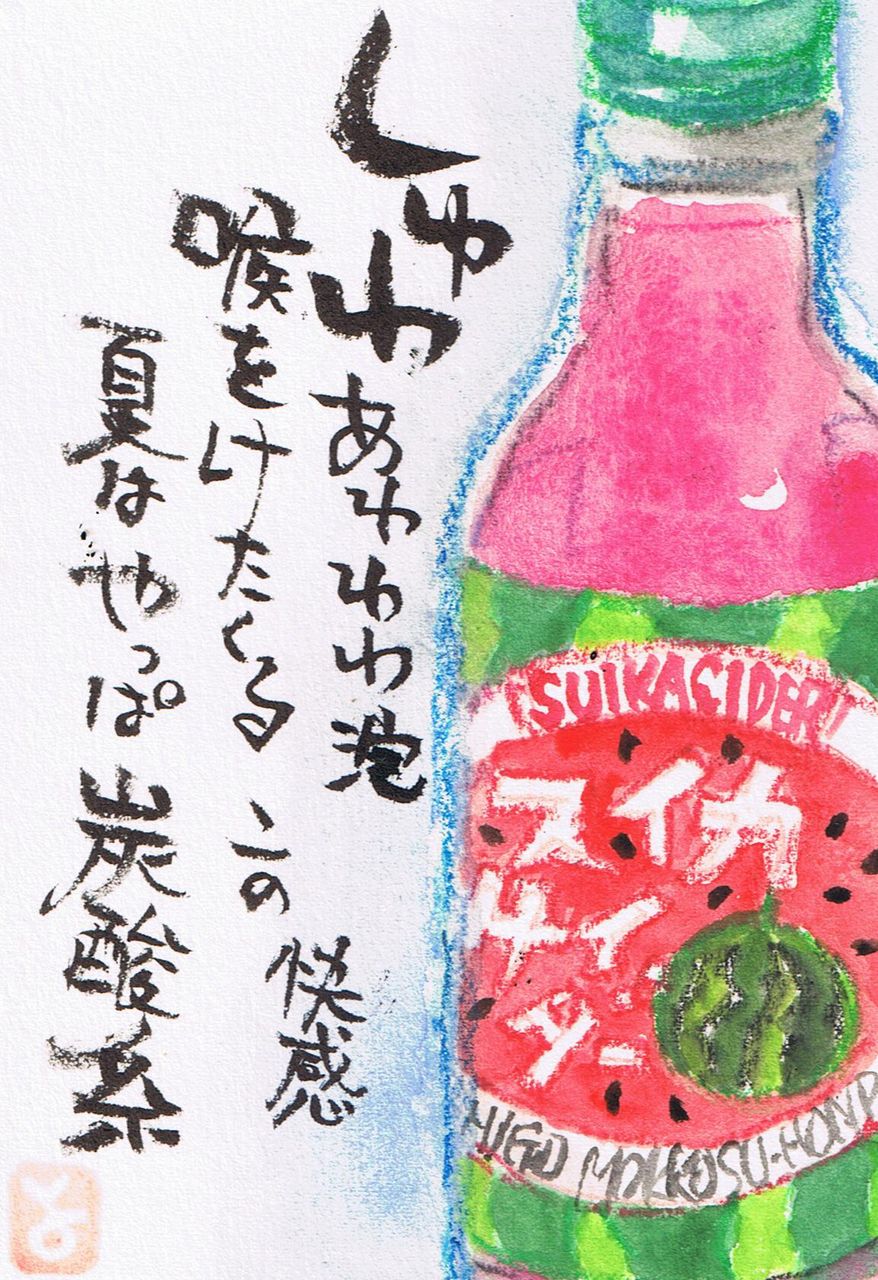 しゅわ
あわわわわ泡
喉をけたくる この
快感
夏は やっぱ 炭酸系
SUIKACIDER
スイカ
サイ
ダー
HIGO MOKKOSU-HONP